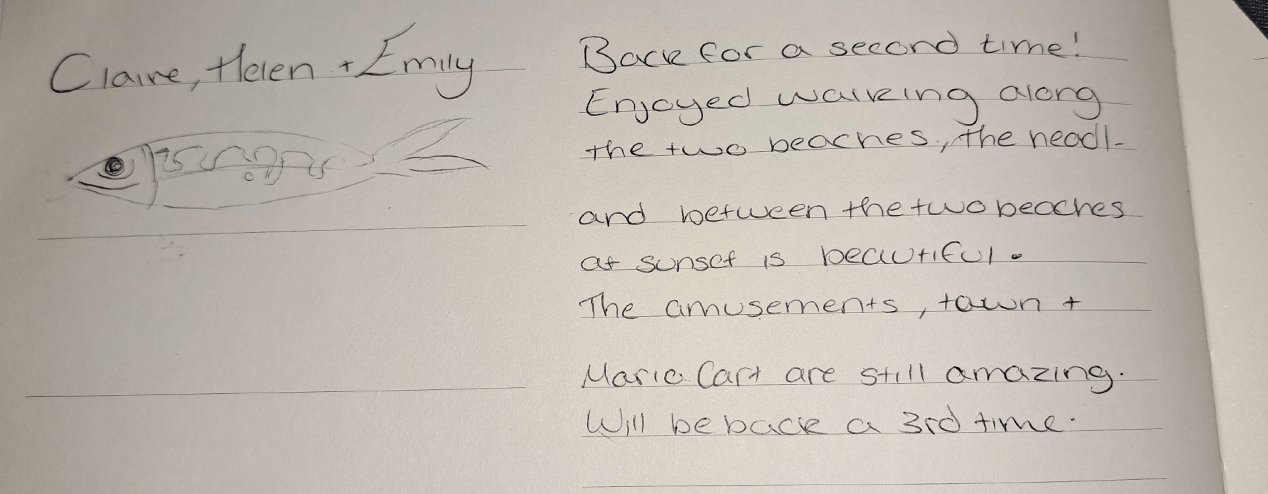 Claire, Helen + Emily
Back for a second time!
Enjoyed walking along
the two beaches, the headl-
and between the two beaches
at sunset is beautiful.
The amusements, town +
Mario Cart are still amazing.
Will be back a 3rd time.